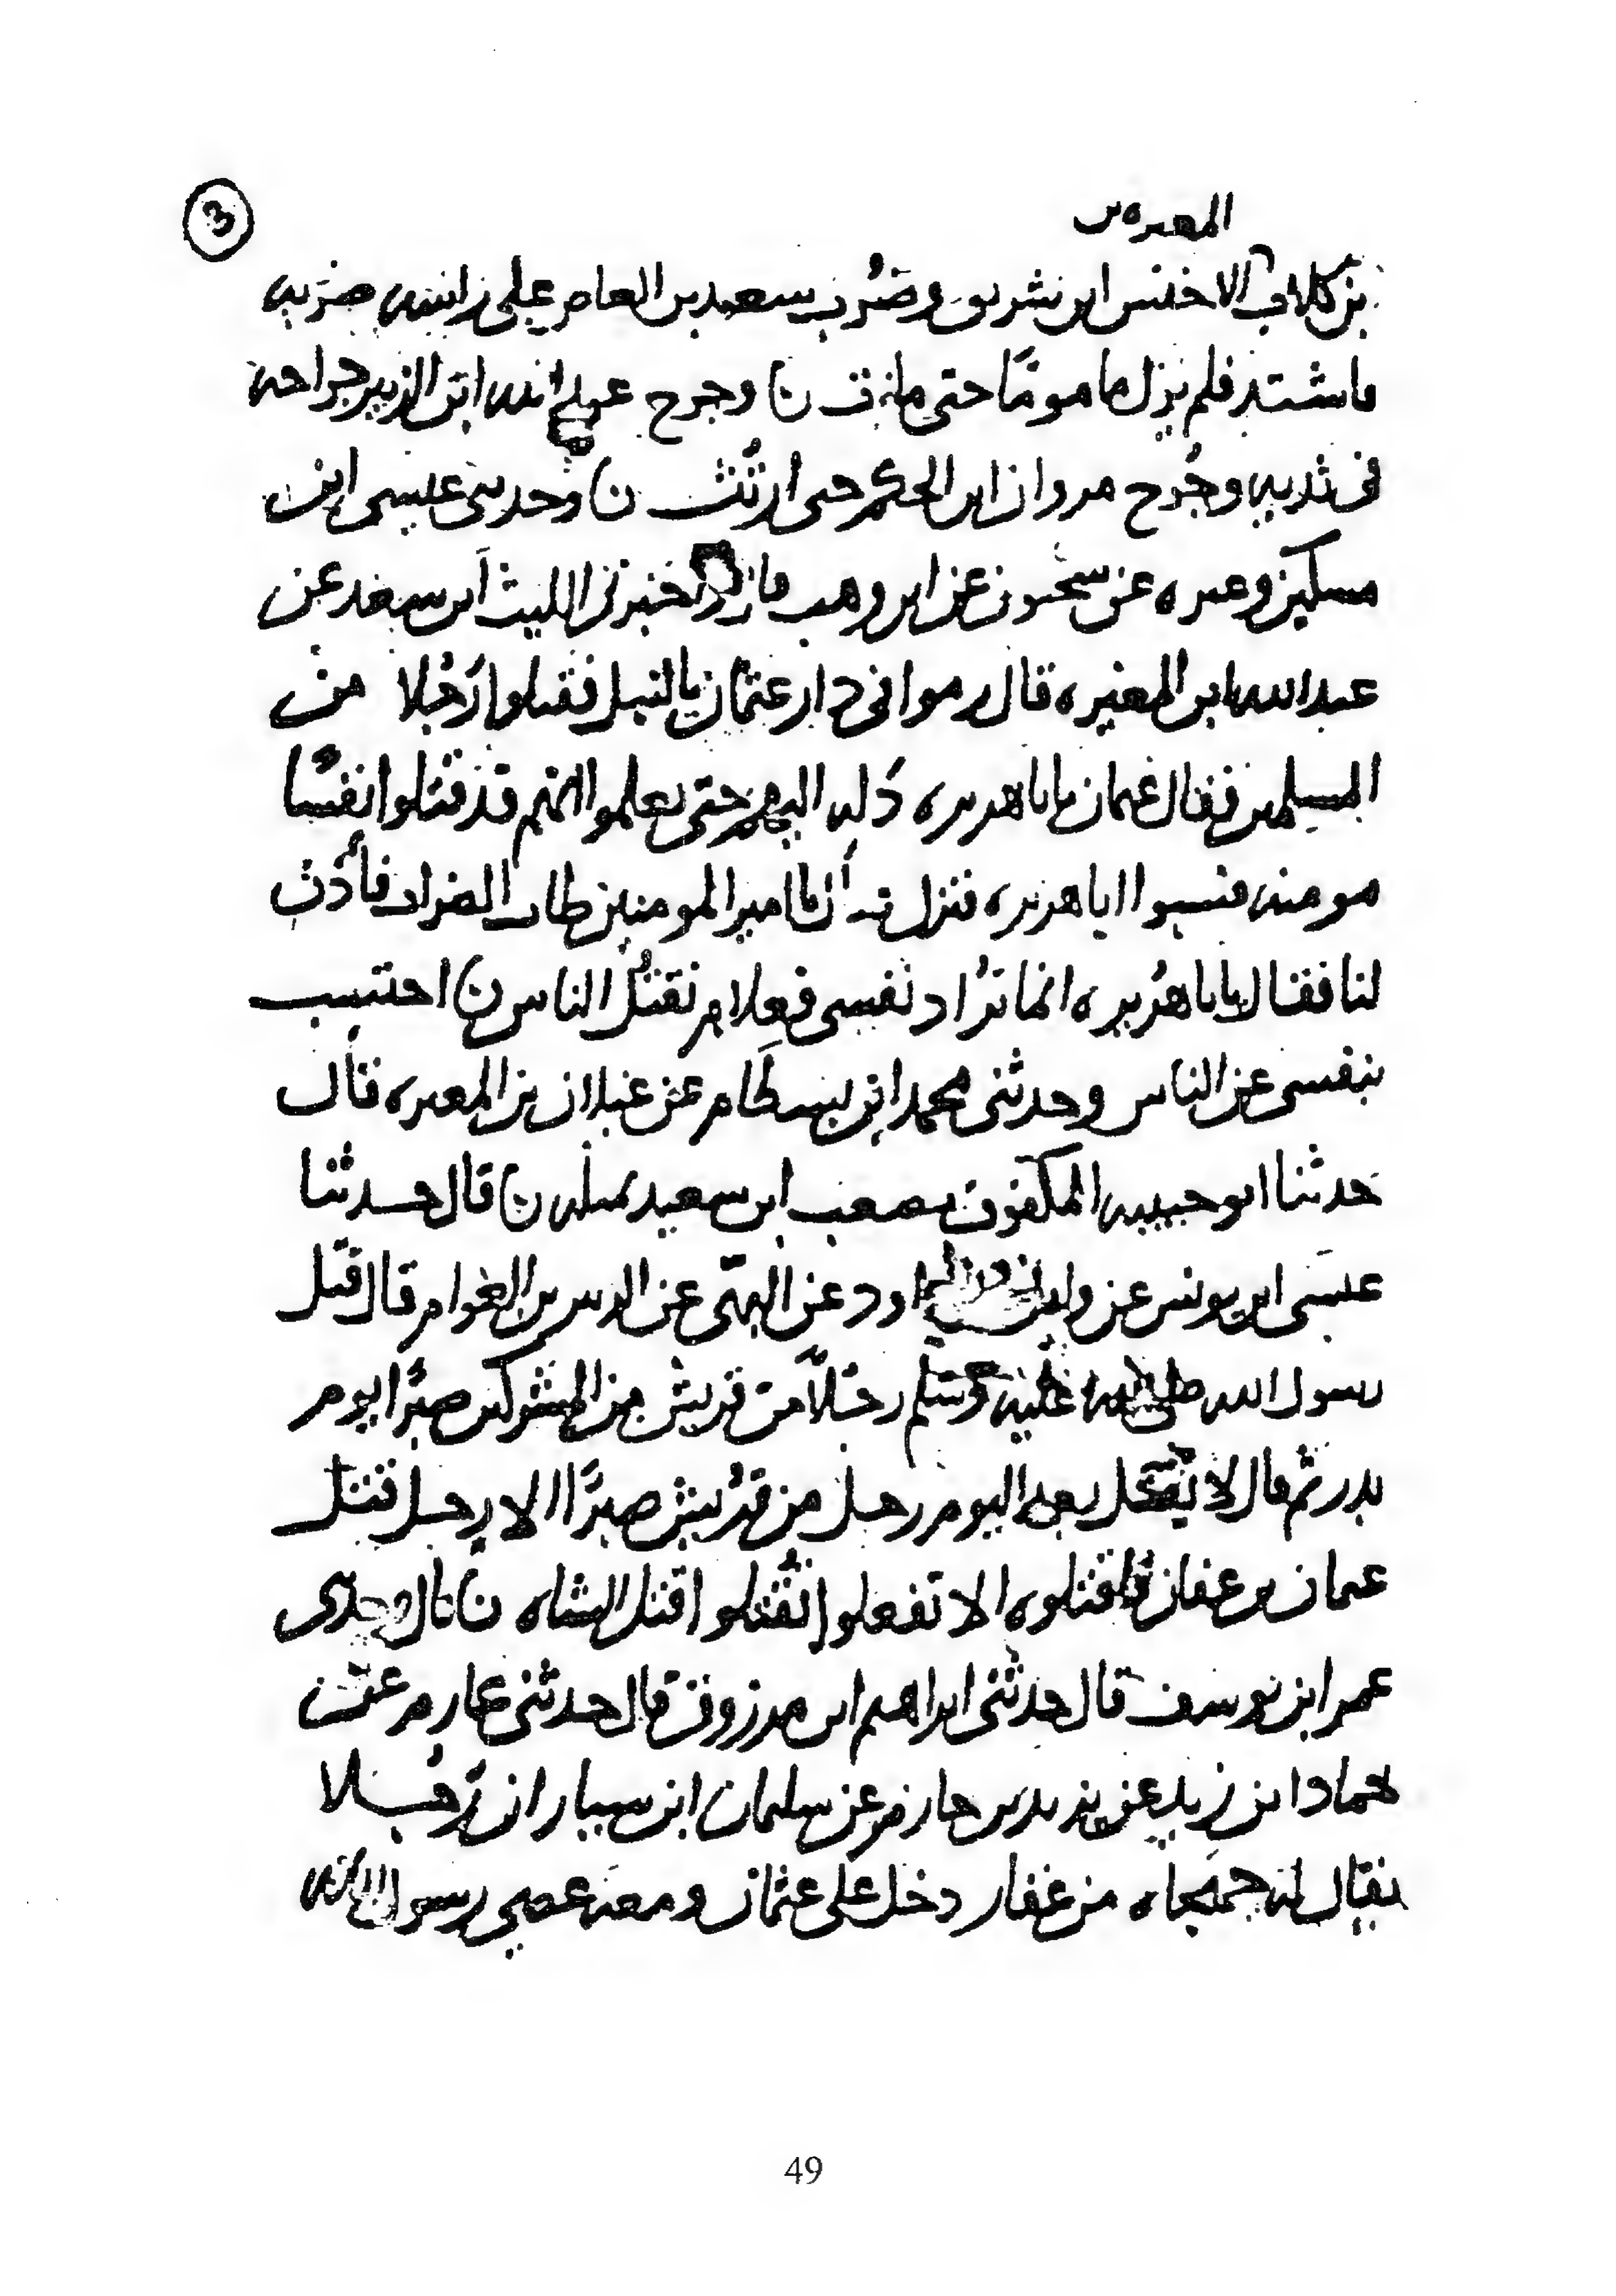 3
المغيره بن
بن كلاب الاخنس ابن شريق وضُرب سعيد بن العاص على راسه ضربه
فاشتد فلم يزل مامومًا حتى مات ن وجرح عبد الله ابن الزبير جراحه
في ثديه وجُرح مروان ابن الحكم حتى ارتُثّ ن وحدثني عيسى ابن
مسكين وغيره عن سحنون عن ابن وهب قال اخبرني الليث ابن سعد عن
عبد الله ابن المغيره قال رموا في دار عثمان بالنبل فقتلوا رَجُلا من
المسلمين فقال عثمان يابا هريره دله اليهم حتى يعلموا انهم قد قتلوا نفسًا
مومنه فسبوا ابا هريره فنزل يا امير المومنين طاب الضراب فأذن
لنا فقال يابا هُريره انما تُراد نفسي فعلام نقتُل الناس ن احتسب
بنفسي عن الناس وحدثني محمد ابن بسطام عن غيلان بن المغيره قال
حدثنا ابو حبيبه المكفوف مصعب ابن سعيد ن قال حدثنا
عيسى ابن يونس عن وايل ابن داود عن البهي عن الزبير بن العوام قال قتل
رسول الله صلى الله عليه وسلم رجلاً من قريش من المشركين صبرًا يوم
بدر ثم قال لا يقتل بعد اليوم رجل من قُريش صبرًا الا رجل قتل
عثمان بن عفان فاقتلوه الا تفعلوا تُقتلوا قتل الشاه ن قال وحدثني
عمر ابن يوسف قال حدثني ابراهيم ابن مرزوق قال حدثني عارم عن
حماد ابن زيد عن يزيد بن حازم عن سليمان ابن سيار ان رَجُلا
يقال له جهجاه من غفار دخل على عثمان ومعه عصى رسول الله
49